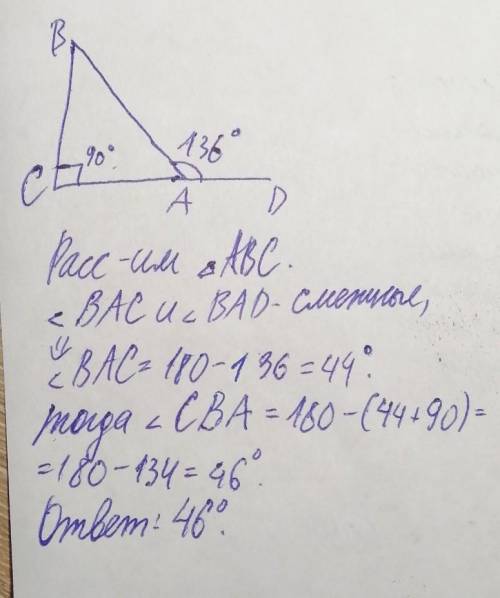 B
90°
136°
C
A
D
Расс-им △ABC.
∠BAC и ∠BAD - смежные,
⇓
∠BAC = 180 - 136 = 44°.
тогда ∠CBA = 180 - (44 + 90) =
= 180 - 134 = 46°.
Ответ: 46°.